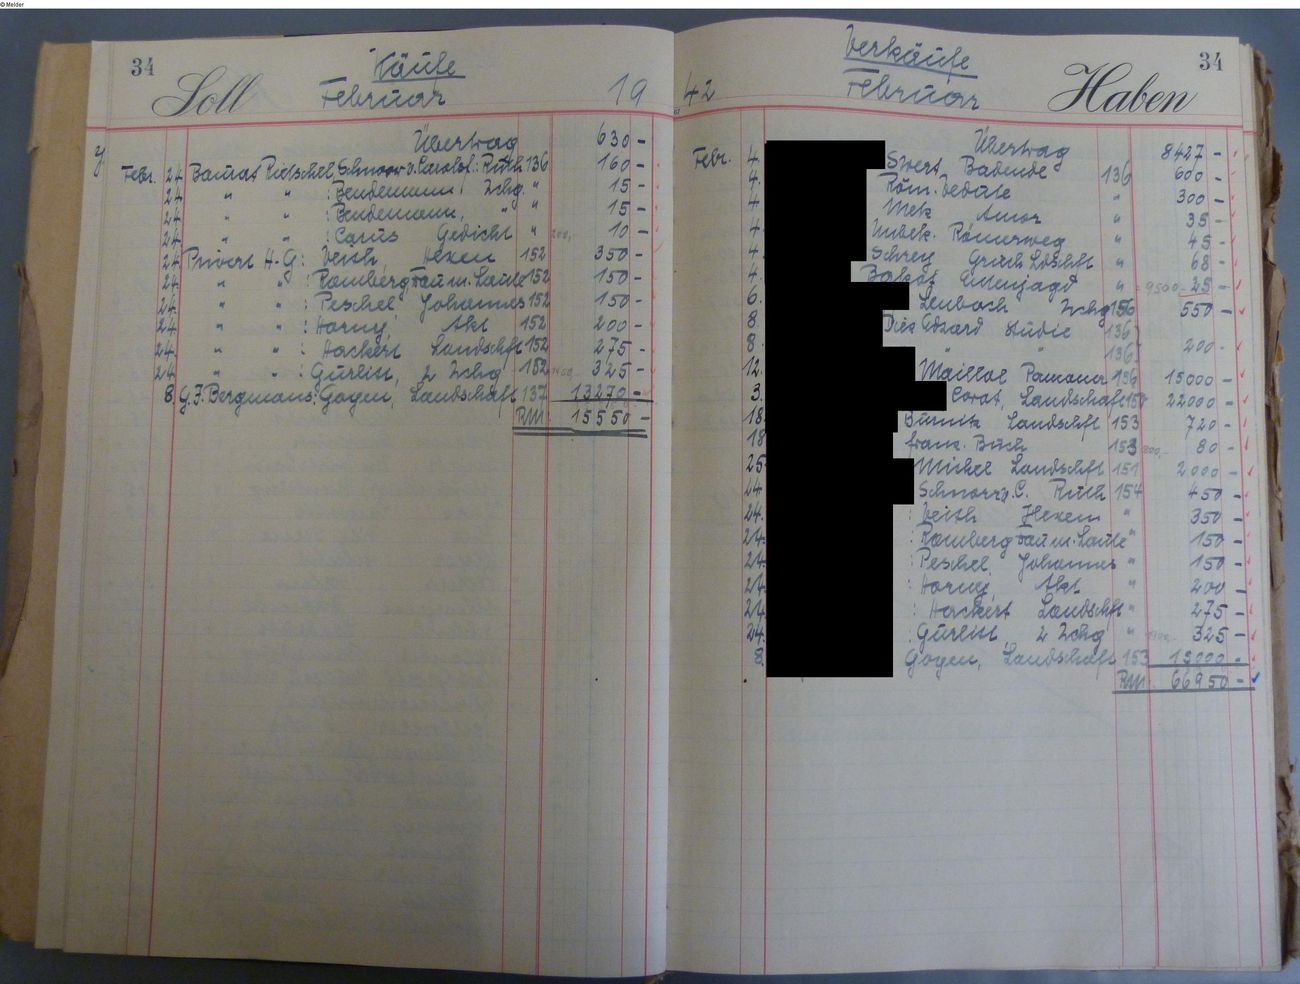 © Melder
34
Käufe
Soll
Februar
19
Übertrag 630 -
Febr. 24 Schnorr v. Carolsf.: Ruth 136 160 -
24 " " : Bendemann, Zchg. " 15 -
24 " " : Bendemann, " " 15 -
24 " " : Carus Gedicht " 10 -
24 Privat H-G: Veith, Hexen 152 350 -
24 " " : Ramberg, Faun. Laute 152 150 -
24 " " : Peschel Johannes 152 150 -
24. " " : Horny, Akt 152 200 -
24. " " : Hackert Landschft 152 275 -
24. " " : Gurlitt, 2 Zchg 152 325 -
8 G.F. Bergmans: Goyen, Landschaft 137 13270 -
RM. 15550 -
Verkäufe
34
42
Februar
Haben
Übertrag 8427 -
Febr. 4. Badende 136 600 -
4. Röm. " 300 -
4. Amor " 35 -
4. Römerweg " 45 -
4. " 68 -
4. " 9500.- 25 -
6. Lenbach Zchg 156 550 -
8. Studie 136
8. " " 136 200 -
12. Maillol Pomona 136 15000 -
3. Corot, Landschaft 150 22000 -
18. Landschft 153 720 -
18 franz. Buch 153 80 -
25 Michel Landschft 151 2000 -
24. Schnorr v. C. Ruth 154 450 -
24. : Veith Hexen " 350 -
24. : Ramberg Faun. Laute " 150 -
24. : Peschel Johannes " 150 -
24. : Horny, Akt " 200 -
24. : Hackert Landschft " 275 -
24. : Gurlitt, 2 Zchg " 325 -
8. Goyen, Landschaft 153 15000 -
RM. 66950 -